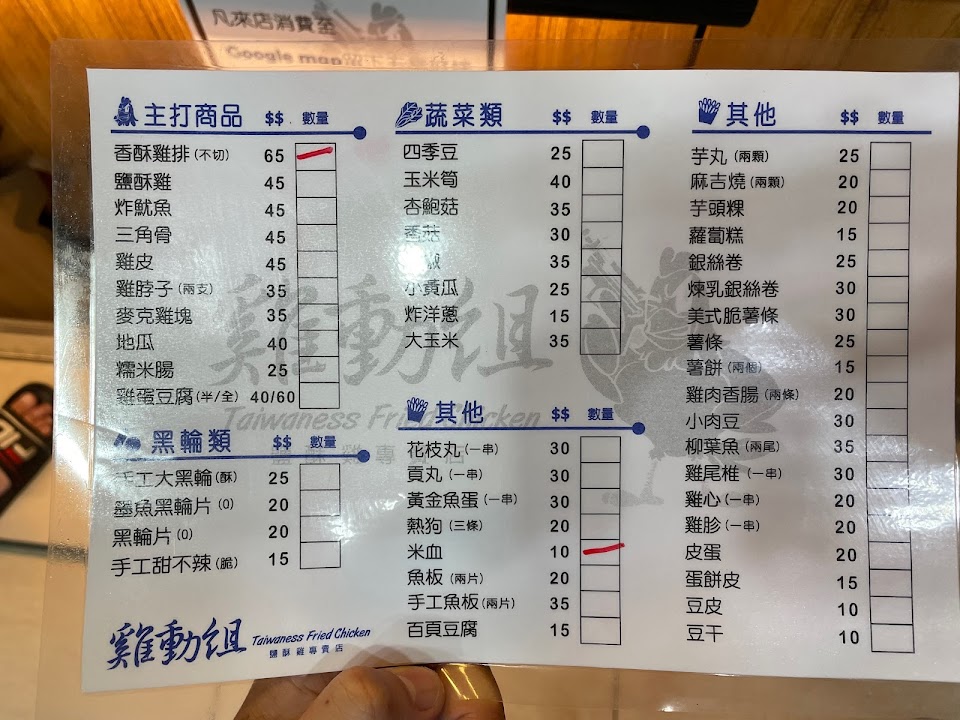 凡來店消費至
Google map
主打商品 $$ 數量
香酥雞排(不切) 65
鹽酥雞 45
炸魷魚 45
三角骨 45
雞皮 45
雞脖子(兩支) 35
麥克雞塊 35
地瓜 40
糯米腸 25
雞蛋豆腐(半/全) 40/60
黑輪類 $$ 數量
手工大黑輪(酥) 25
墨魚黑輪片(Q) 20
黑輪片(Q) 20
手工甜不辣(脆) 15
雞動組 Taiwaness Fried Chicken
鹽酥雞專賣店
蔬菜類 $$ 數量
四季豆 25
玉米筍 40
杏鮑菇 35
香菇 30
椒 35
小黃瓜 25
炸洋蔥 15
大玉米 35
雞動組
Taiwaness Fried Chicken
鹽酥雞專賣店
其他 $$ 數量
花枝丸(一串) 30
貢丸(一串) 30
黃金魚蛋(一串) 30
熱狗(三條) 20
米血 10
魚板(兩片) 20
手工魚板(兩片) 35
百頁豆腐 15
其他 $$ 數量
芋丸(兩顆) 25
麻吉燒(兩顆) 20
芋頭粿 20
蘿蔔糕 15
銀絲卷 25
煉乳銀絲卷 30
美式脆薯條 30
薯條 25
薯餅(兩個) 15
雞肉香腸(兩條) 20
小肉豆 30
柳葉魚(兩尾) 35
雞尾椎(一串) 30
雞心(一串) 20
雞胗(一串) 20
皮蛋 20
蛋餅皮 15
豆皮 10
豆干 10